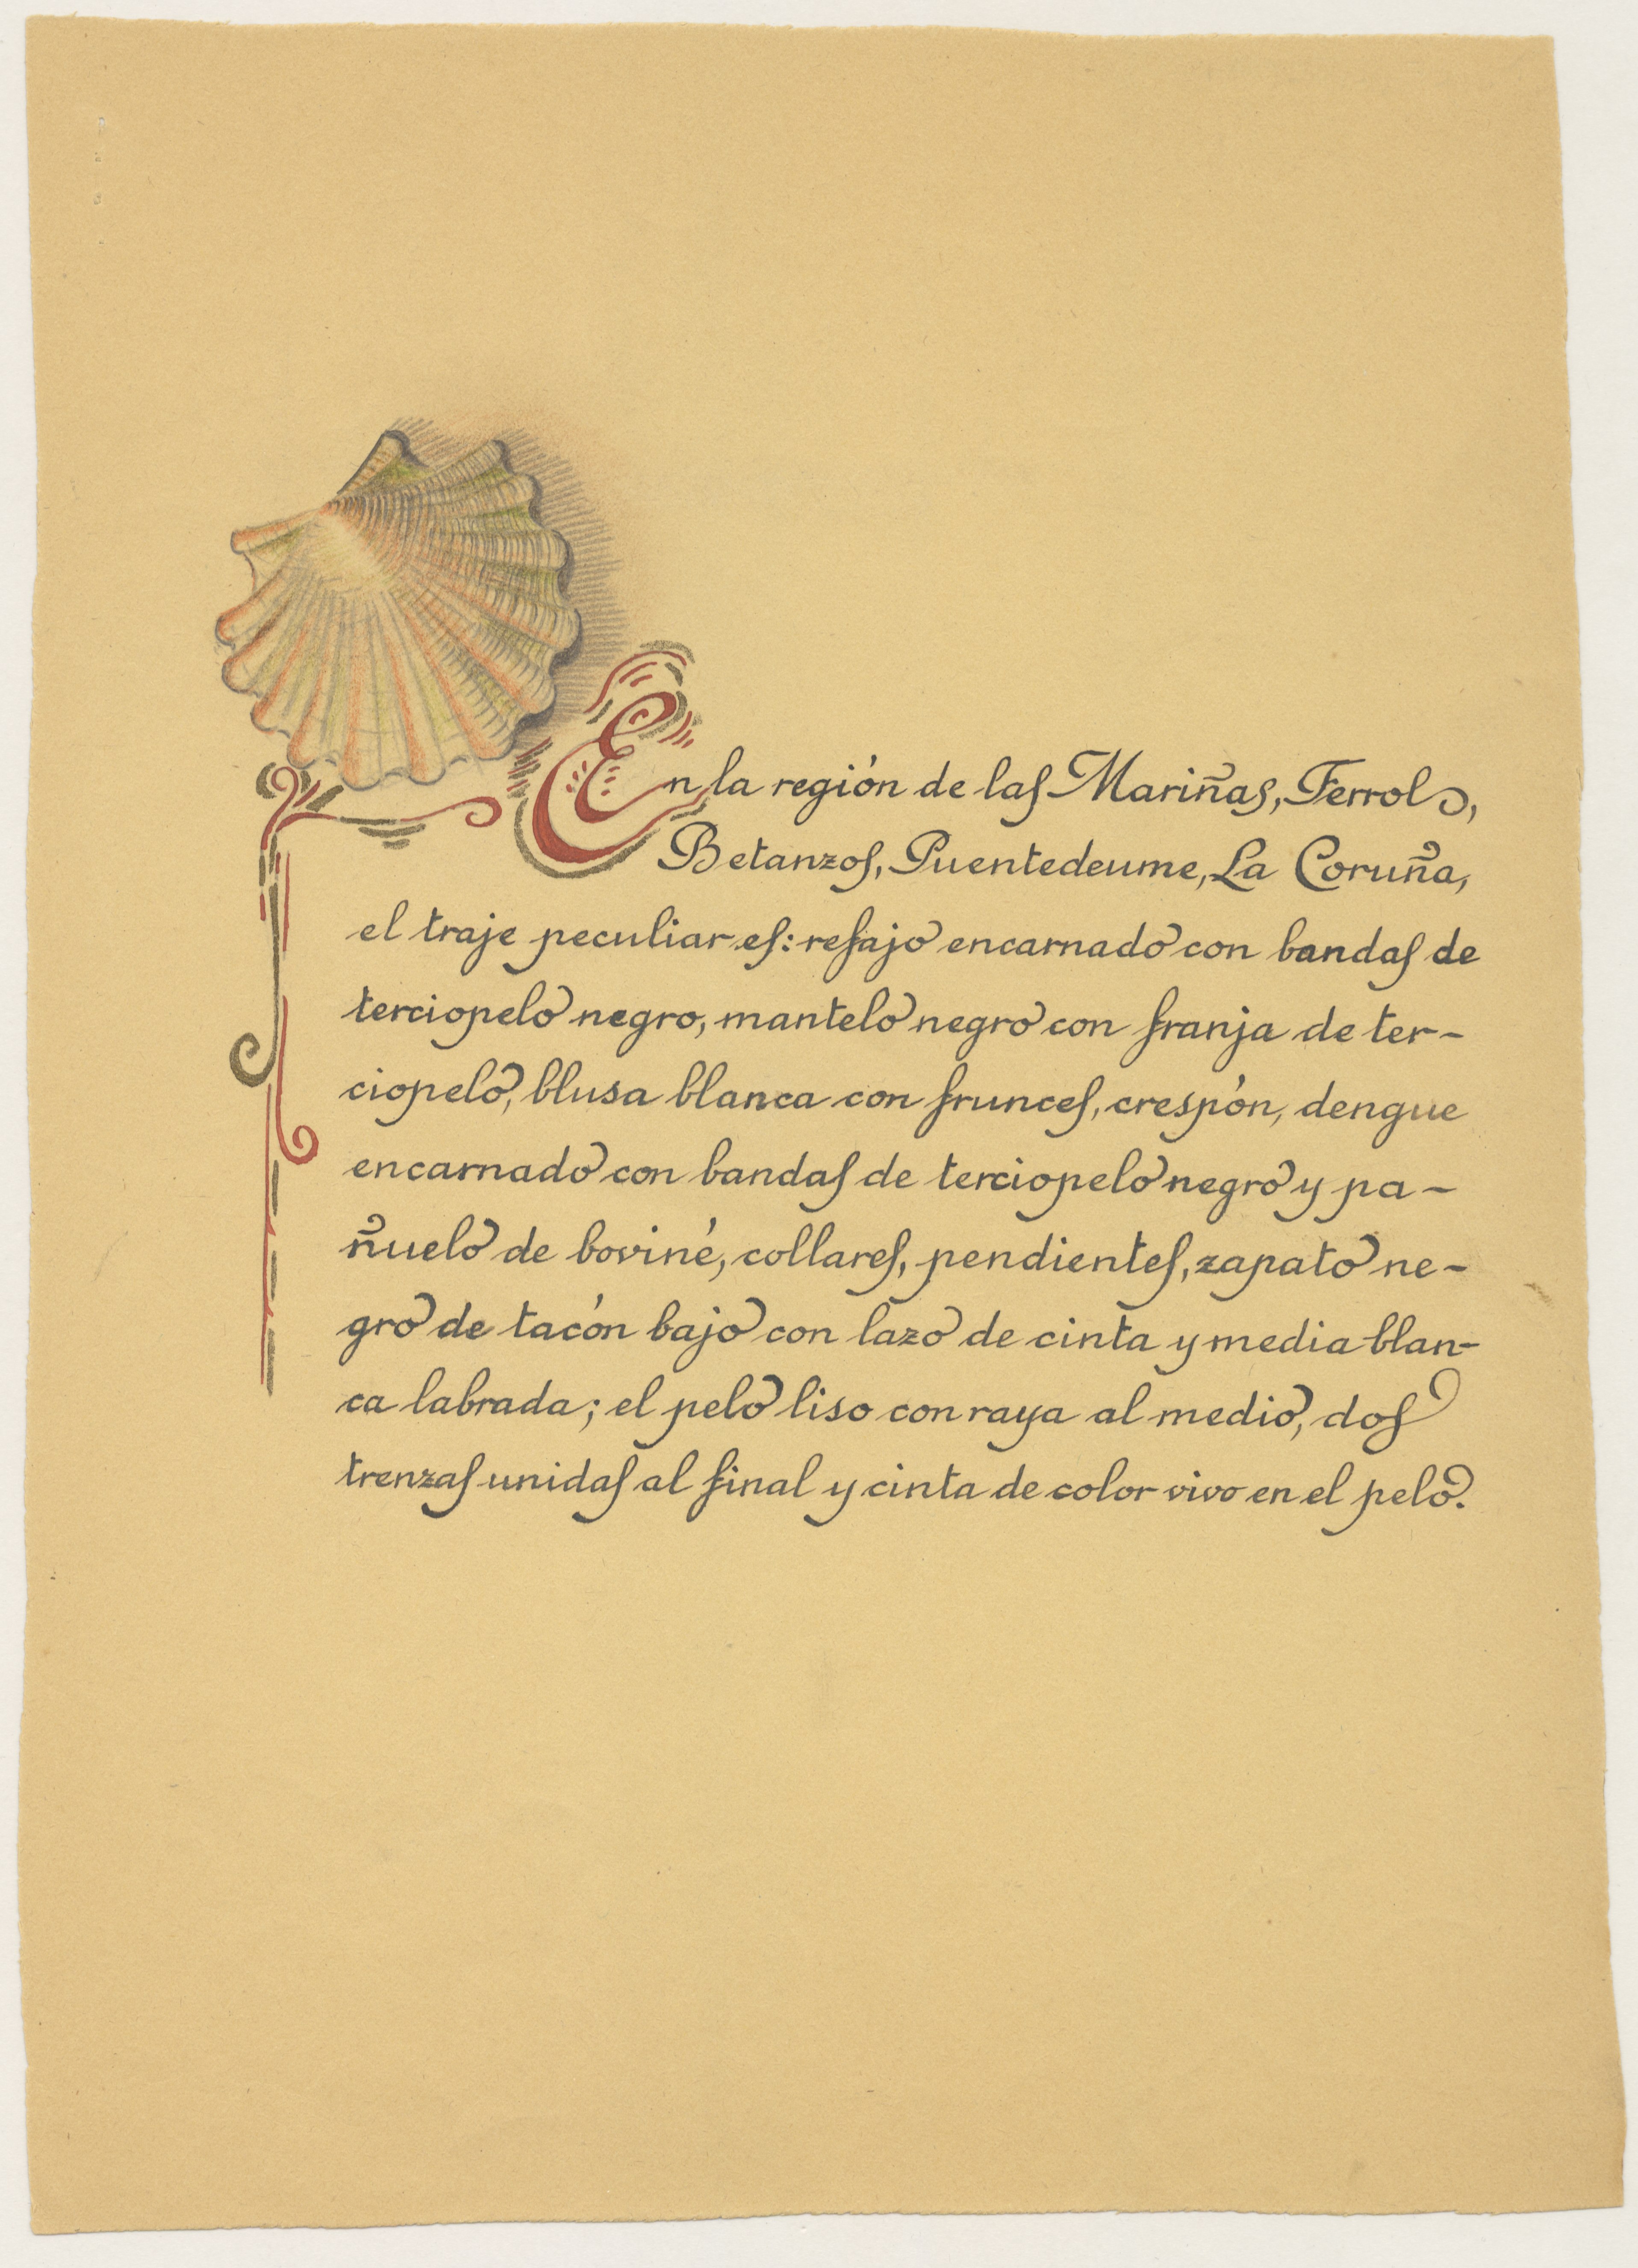 En la región de las Mariñas, Ferrol,
Betanzos, Puentedeume, La Coruña,
el traje peculiar es: refajo encarnado con bandas de
terciopelo negro, mantelo negro con franja de ter-
ciopelo, blusa blanca con frunces, crespón, dengue
encarnado con bandas de terciopelo negro y pa-
ñuelo de boviné, collares, pendientes, zapato ne-
gro de tacón bajo con lazo de cinta y media blan-
ca labrada; el pelo liso con raya al medio, dos
trenzas unidas al final y cinta de color vivo en el pelo.